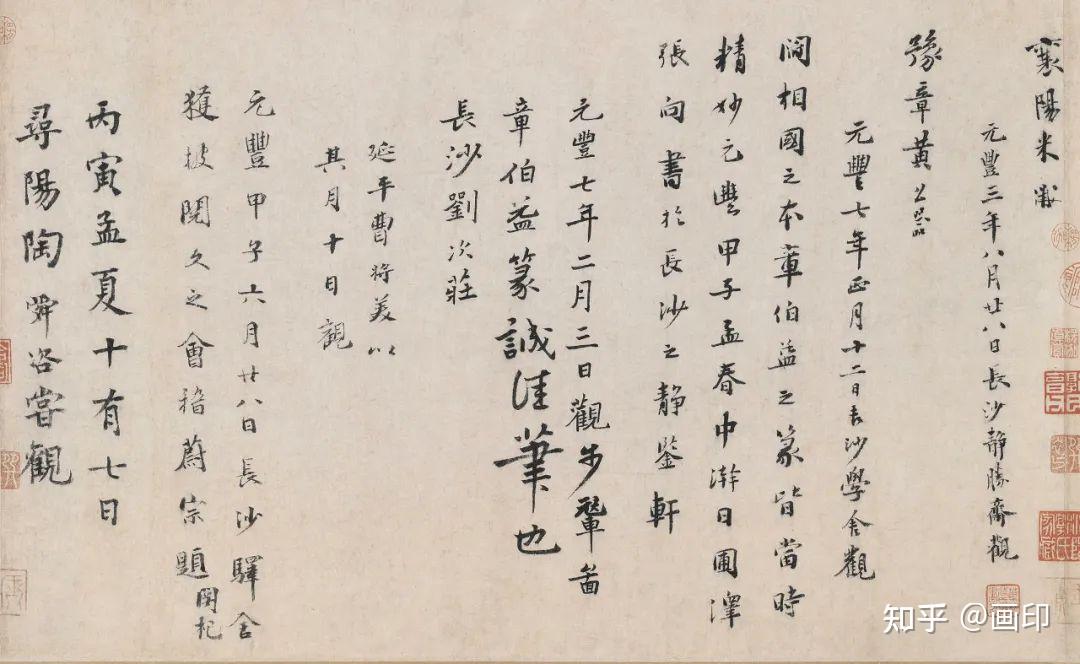 襄陽米黻
元豐三年八月廿八日長沙静勝齋觀
豫章黄公器
元豐七年正月十二日長沙學舍觀
閻相國之本章伯益之篆皆當時
精妙元豐甲子孟春中澣日圃澤
張向書於長沙之靜鑒軒
元豐七年二月三日觀步輦啚
章伯益篆誠佳筆也
長沙劉次莊
延平曹將美以
其月十日觀
元豐甲子六月廿八日長沙驛舍
獲披閲久之會稽蔚宗題
関杞
丙寅孟夏十有七日
尋陽陶舜咨嘗觀
知乎 @画印